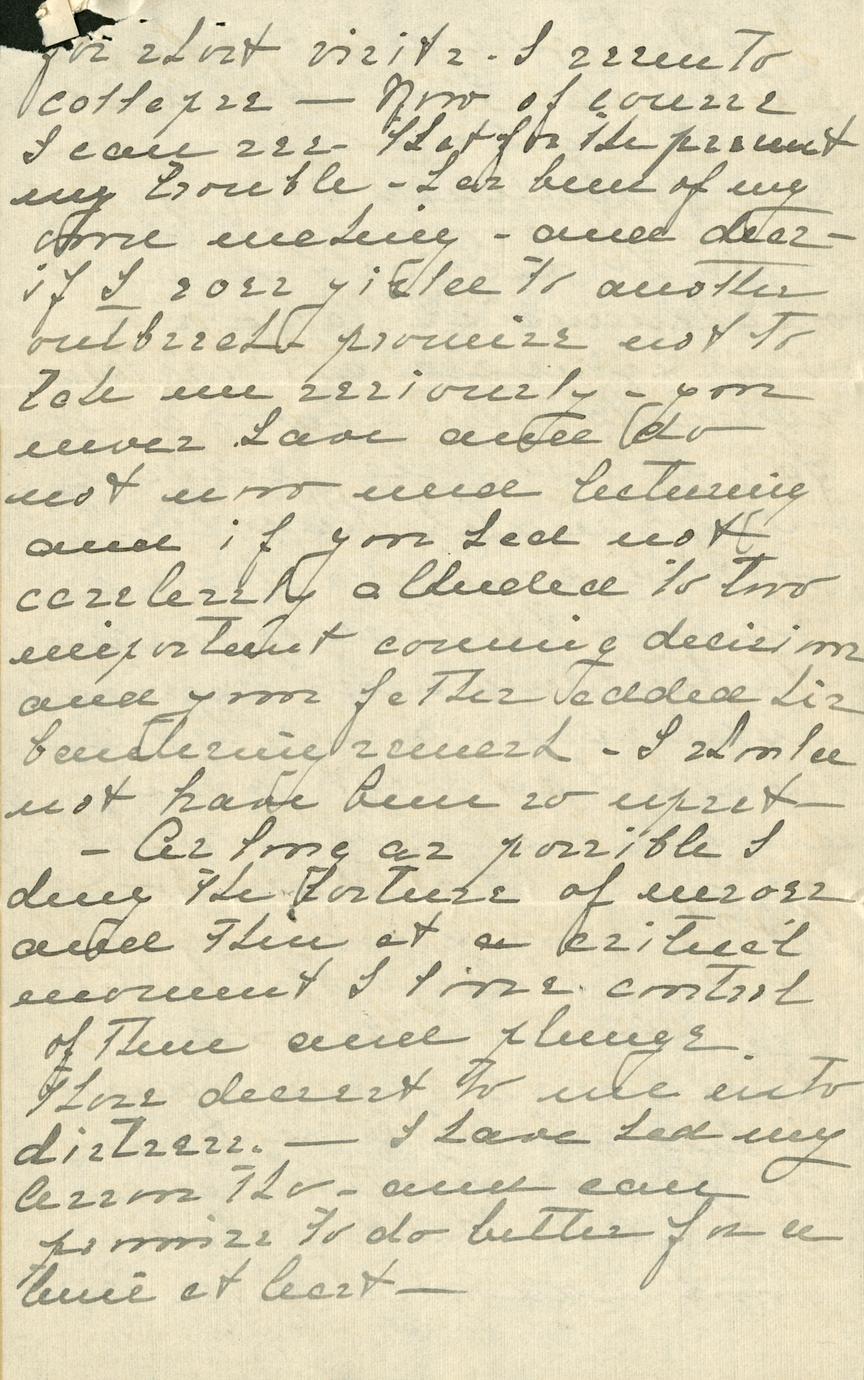 for short visits. I seem to
collapse — Now of course
I can see - that for the present
my trouble - has been of my
own making - and dear -
if I ever yield to another
outbreak - promise not to
take me seriously - you
never have and do
not now need lecturing
and if you had not
carelessly alluded to two
important coming decisions
and your father added his
bantering remark - I should
not have been so upset -
- As long as possible I
deny the torture of nerves
and then at a critical
moment I lose control
of them and plunge
those dearest to me into
distress. — I have had my
lesson tho - and can
promise to do better for a
time at least —